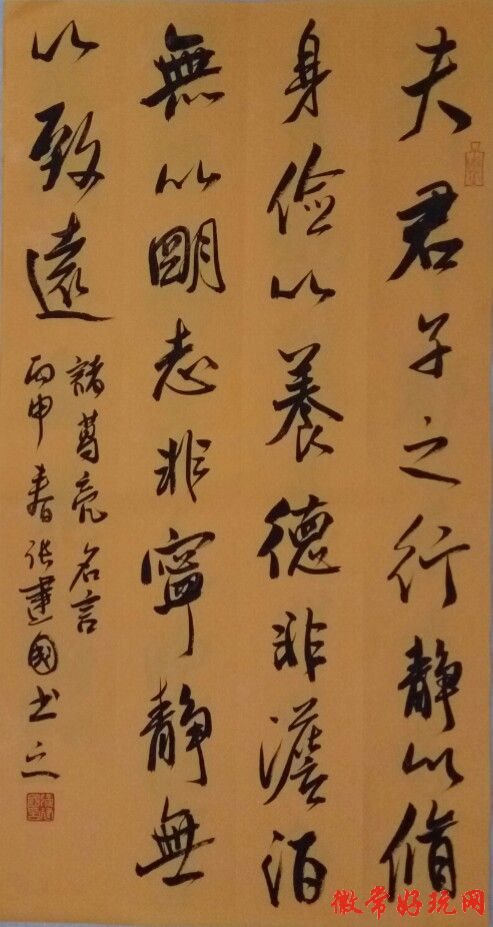 夫君子之行静以脩
身俭以養德非澹泊
無以明志非寧静無
以致遠
諸葛亮名言
丙申春张建國书之
徽常好玩网